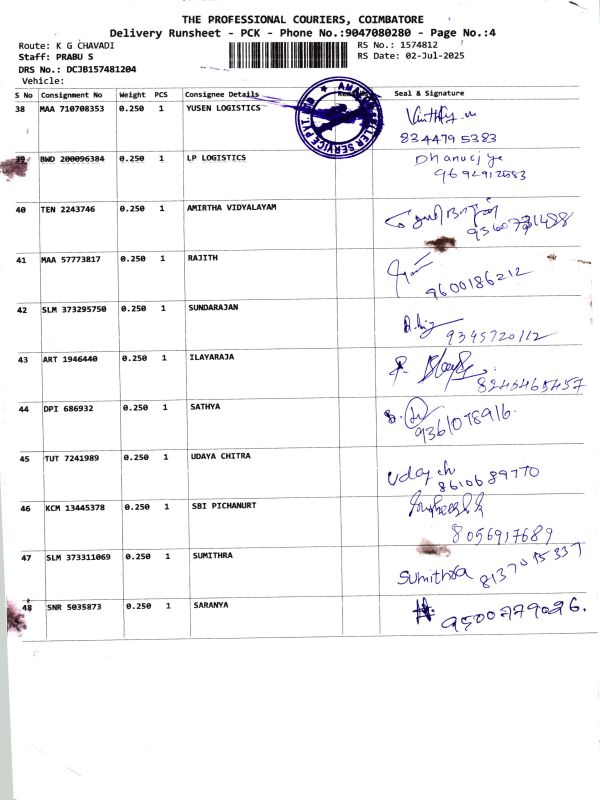 THE PROFESSIONAL COURIERS, COIMBATORE
Delivery Runsheet - PCK - Phone No.:9047080280 - Page No.:4
Route: K G CHAVADI RS No.: 1574812
Staff: PRABU S RS Date: 02-Jul-2025
DRS No.: DCJB157481204
Vehicle:
S No Consignment No Weight PCS Consignee Details Seal & Signature
38 MAA 710708353 0.250 1 YUSEN LOGISTICS
8344795383
39 BWD 200096384 0.250 1 LP LOGISTICS
40 TEN 2243746 0.250 1 AMIRTHA VIDYALAYAM
41 MAA 57773817 0.250 1 RAJITH
9600186212
42 SLM 373295750 0.250 1 SUNDARAJAN
9345720112
43 ART 1946440 0.250 1 ILAYARAJA
8245465457
44 DPI 686932 0.250 1 SATHYA
9361078916.
45 TUT 7241989 0.250 1 UDAYA CHITRA
Uday ch
8610689770
46 KCM 13445378 0.250 1 SBI PICHANURT
8056917689
47 SLM 373311069 0.250 1 SUMITHRA
Sumithra 8137015337
48 SNR 5035873 0.250 1 SARANYA
9500779026.